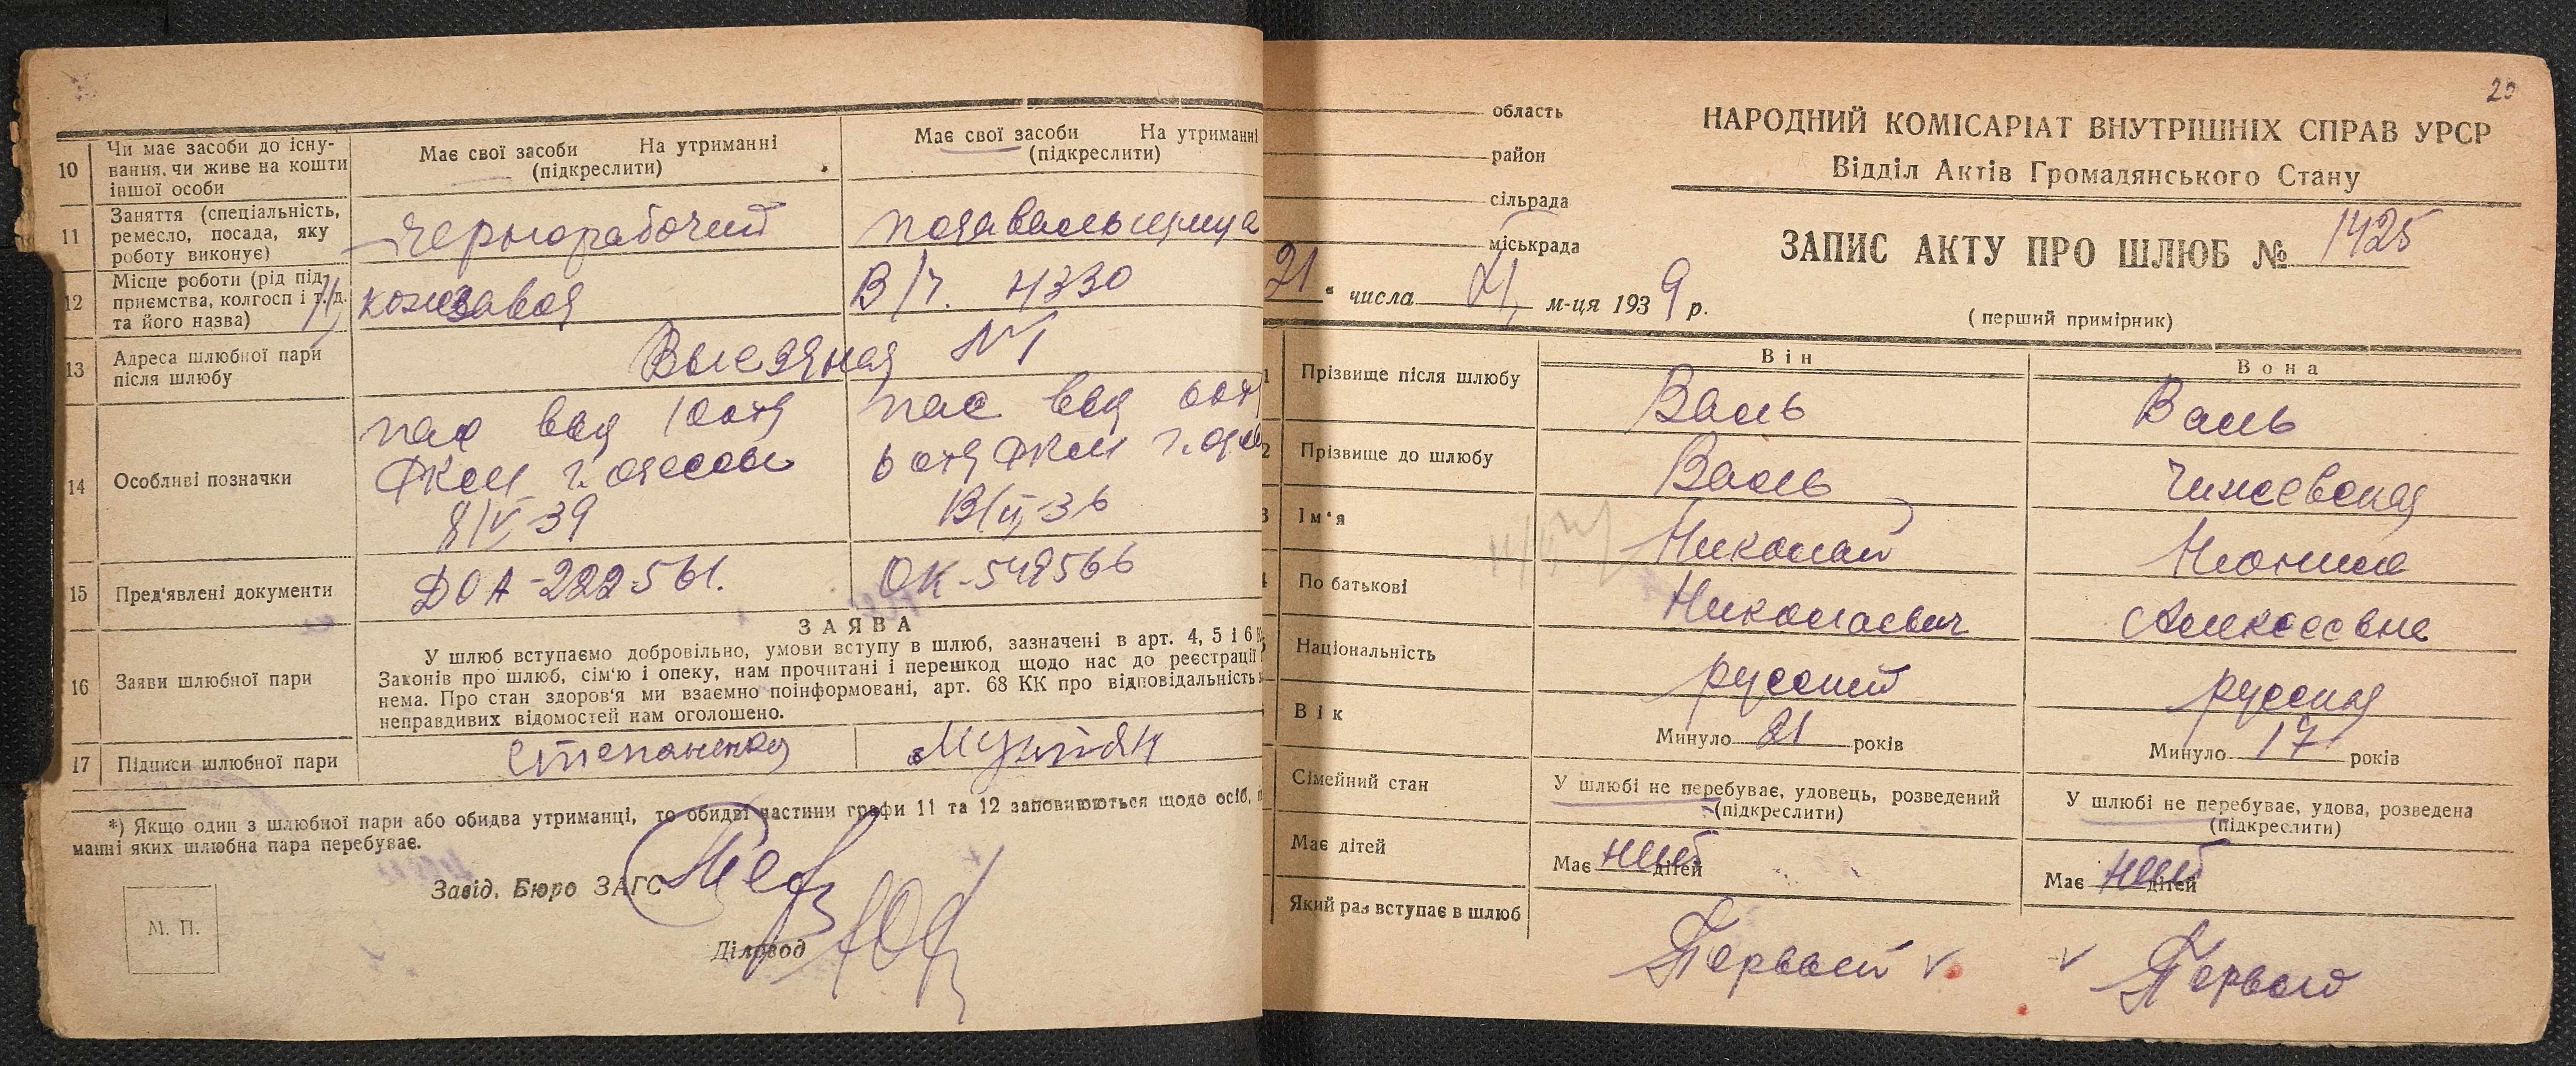 10 Чи має засоби до існу-
вання, чи живе на кошти
іншої особи
Має свої засоби На утриманні
(підкреслити)
Має свої засоби На утриманні
(підкреслити)
11 Заняття (спеціальність,
ремесло, посада, яку
роботу виконує)
чернорабочий
подавальщица
12 Місце роботи (рід під-
приємства, колгосп і т. д.
та його назва)
кожзавод
В/ч. 4330
13 Адреса шлюбної пари
після шлюбу
№1
14 Особливі позначки
пас выд 10 отд
РКМ г. Одессы
8/IV-39
пас выд
6 отд РКМ г.
36
15 Пред'явлені документи
ДОА-222561.
ОК-549566
16 Заяви шлюбної пари
ЗАЯВА
У шлюб вступаємо добровільно, умови вступу в шлюб, зазначені в арт. 4, 5 і 6
Законів про шлюб, сім'ю і опеку, нам прочитані і перешкод щодо нас до реєстрації
нема. Про стан здоров'я ми взаємно поінформовані, арт. 68 КК про відповідальність
неправдивих відомостей нам оголошено.
17 Підписи шлюбної пари
*) Якщо один з шлюбної пари або обидва утриманці, то обидві частини графи 11 та 12 заповнюються щодо осіб,
манні яких шлюбна пара перебуває.
Завід. Бюро ЗАГС
Діловод
М. П.
область
район
сільрада
міськрада
21 " числа м-ця 1939 р.
НАРОДНИЙ КОМІСАРІАТ ВНУТРІШНІХ СПРАВ УРСР
Відділ Актів Громадянського Стану
ЗАПИС АКТУ ПРО ШЛЮБ № 1425
(перший примірник)
Він
Вона
1 Прізвище після шлюбу
Валь
Валь
2 Прізвище до шлюбу
Валь
Чижевская
3 Ім'я
Николай
Леонила
4 По батькові
Николаевич
Алексеевна
Національність
русский
русская
Вік
Минуло 21 років
Минуло 17 років
Сімейний стан
У шлюбі не перебуває, удовець, розведений
(підкреслити)
У шлюбі не перебуває, удова, розведена
(підкреслити)
Має дітей
Має нет дітей
Має нет дітей
Який раз вступає в шлюб
Первый
Первый